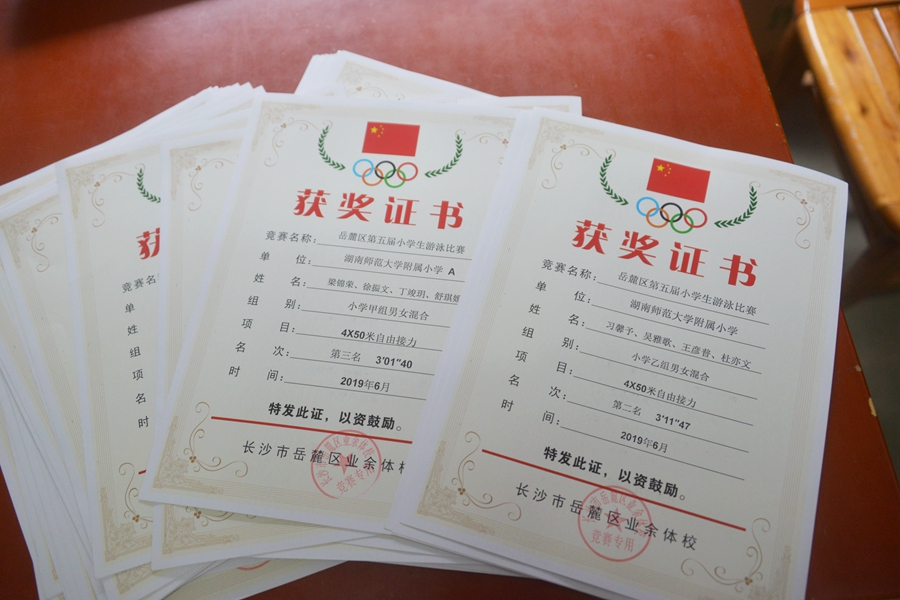 获
单
姓
组
项
名
时
获奖证书
竞赛名称：岳麓区第五届小学生游泳比赛
单 位：湖南师范大学附属小学 A
姓 名：梁锦荣、徐振文、丁竣玥、舒琪
组 别：小学甲组男女混合
项 目：4X50米自由接力
名 次：第三名 3′01″40
时 间：2019年6月
特发此证，以资鼓励。
长沙市岳麓区业余体校
竞赛专用
获奖证书
竞赛名称：岳麓区第五届小学生游泳比赛
单 位：湖南师范大学附属小学
姓 名：习馨予、吴雅歌、王彦普、杜亦文
组 别：小学乙组男女混合
项 目：4X50米自由接力
名 次：第二名 3′11″47
时 间：2019年6月
特发此证，以资鼓励。
长沙市岳麓区业余体校
竞赛专用